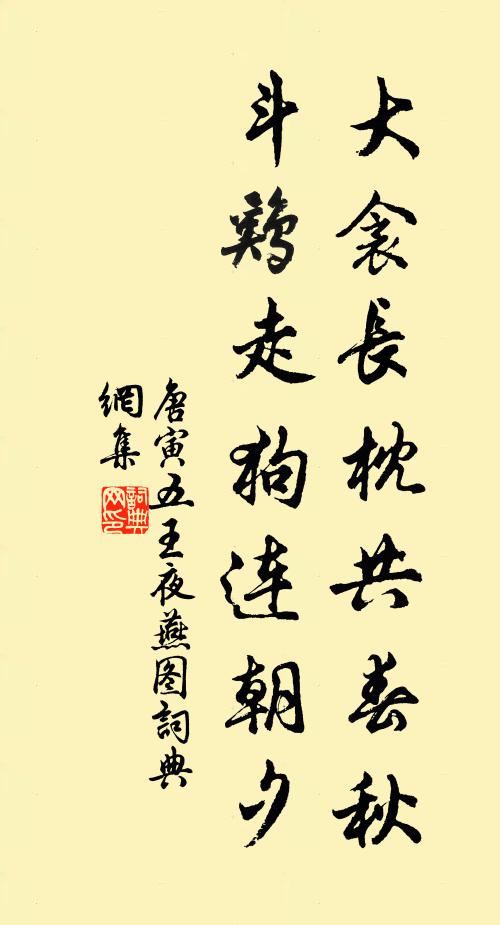 大衾長枕共春秋
斗鷄走狗連朝夕
唐寅五王夜燕图詞典
網集
詞典網印